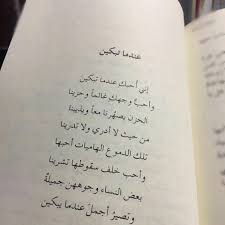 عندما تبكين
إني أحبك عندما تبكين
وأحب وجهك غائماً وحزينا
الحزن يصهرنا معاً ويذيبنا
من حيث لا أدري ولا تدرينا
تلك الدموع الهاميات أحبها
وأحب خلف سقوطها تشرينا
بعض النساء وجوههن جميلة
وتصير أجمل عندما يبكين